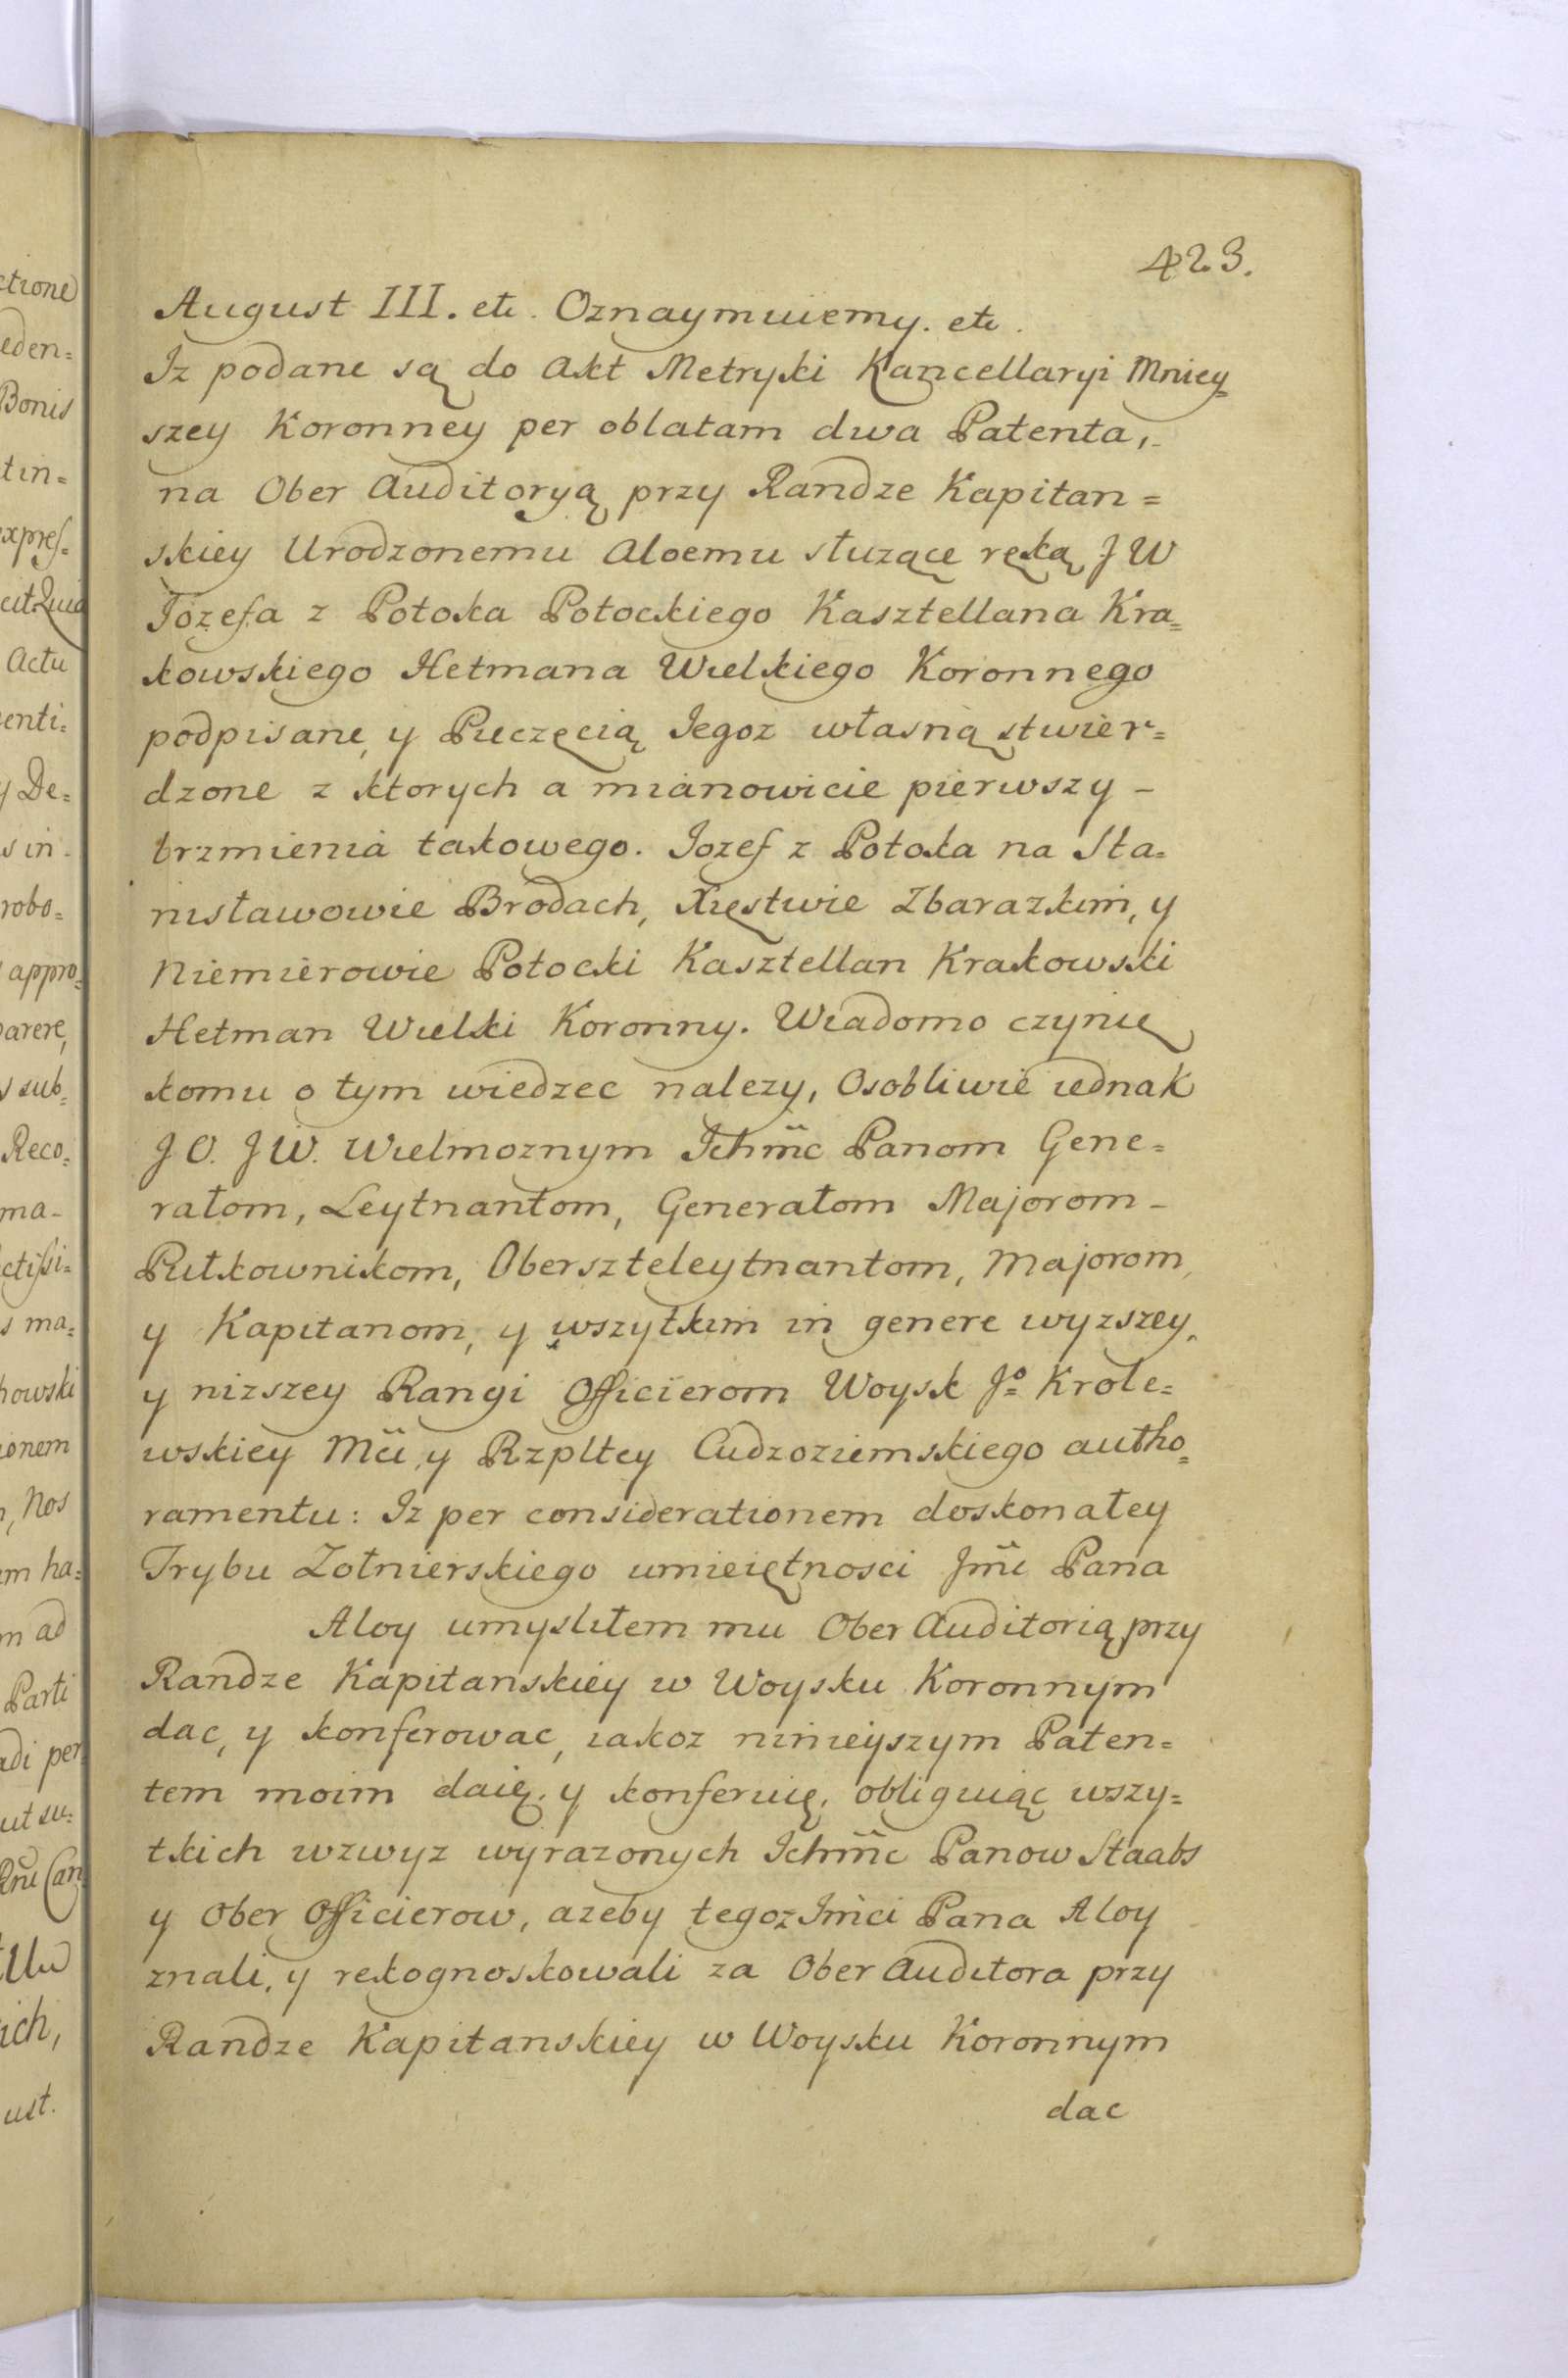 423.
August III. etc. Oznaymuiemy. etc.
Iz podane są do Akt Metryki Kancellaryi Mniey=
szey Koronney per oblatam dwa Patenta,
na Ober Auditoryą przy Randze Kapitan=
skiey Urodzonemu Aloemu służące ręką JW
Jozefa z Potoka Potockiego Kasztellana Kra=
kowskiego Hetmana Wielkiego Koronnego
podpisane, y Pieczęcią Jegoz własną stwier=
dzone z ktorych a mianowicie pierwszy -
brzmienia takowego. Jozef z Potoka na Sta=
nisławowie Brodach, Xięstwie Zbarazkim, y
Niemierowie Potocki Kasztellan Krakowski
Hetman Wielki Koronny. Wiadomo czynię
komu o tym wiedzec nalezy, Osobliwie iednak
J O. J W. Wielmoznym Ichmc Panom Gene=
rałom, Leytnantom, Generałom Majorom -
Pułkownikom, Oberszteleytnantom, Majorom,
y Kapitanom, y wszytkim in genere wyzszey,
y nizszey Rangi Officierom Woysk Jo Krole=
wskiey Mci, y Rzpltey Cudzoziemskiego autho=
ramentu: Iz per considerationem doskonałey
Trybu Zołnierskiego umieiętnosci Jmc Pana
Aloy umysliłem mu Ober Auditorią przy
Randze Kapitanskiey w Woysku Koronnym
dac, y konferowac, iakoz ninieyszym Paten=
tem moim daię, y konferuię, obliguiąc wszy=
tkich wzwyz wyrazonych Ichmc Panow Staabs
y Ober Officierow, azeby tegoz Jmci Pana Aloy
znali, y rekognoskowali za Ober Auditora przy
Randze Kapitanskiey w Woysku Koronnym
dac
ctione
eden=
Bonis
tin=
xpres=
Actu
enti=
y De=
s in-
robo=
appro=
parere,
s sub=
Reco=
ma-
s ma=
howski
ionem
n, Nos
em ha=
m ad
Parti
adi per
ut su=
ich,
ust.